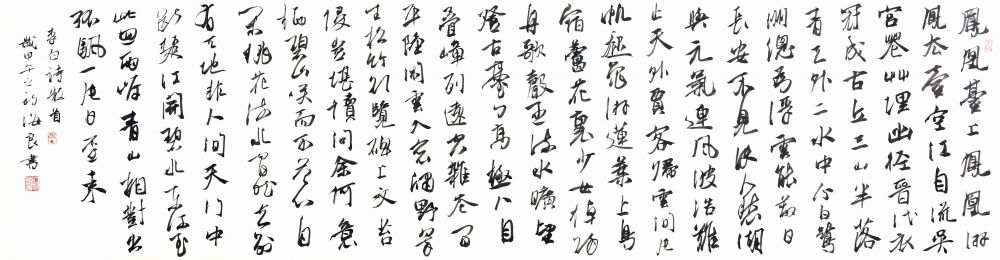 鳳凰臺上鳳凰游
鳳去臺空江自流吳
宮花草埋幽徑晉代衣
冠成古丘三山半落
青天外二水中分白鷺
洲總爲浮雲能蔽日
長安不見使人愁湖
與元氣連風波浩難
止天外賈客歸雲間片
帆起龜游蓮葉上鳥
宿蘆花裏少女棹歸
舟歌聲逐流水曠望
登古臺々高極人目
疊嶂列遠空雜花間
平陸閑雲入窗牖野翠
生松竹欲覽碑上文苔
侵豈堪讀問余何意
栖碧山笑而不答心自
閑桃花流水窅然去別
有天地非人間天門中
斷楚江開碧水東流至
此回兩岸青山相對出
孤帆一片日邊來
李白詩數首
歲甲午之初海良書